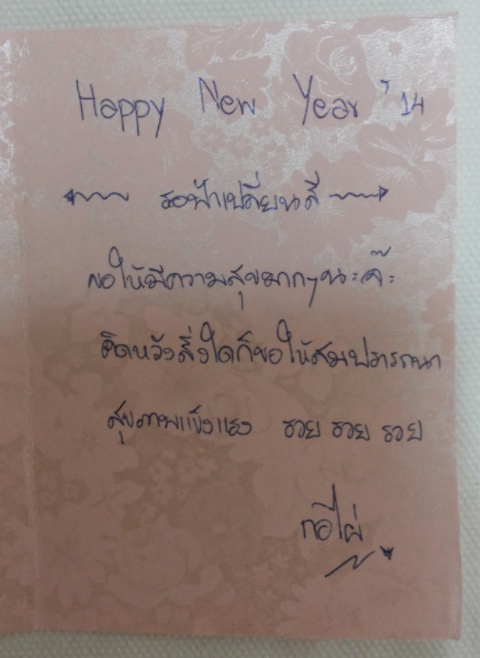 Happy New Year '14
รอฟ้าเปลี่ยนสี
ขอให้มีความสุขมากๆนะค๊ะ
คิดหวังสิ่งใดก็ขอให้สมปรารถนา
สุขภาพแข็งแรง รวย รวย รวย
กอไผ่